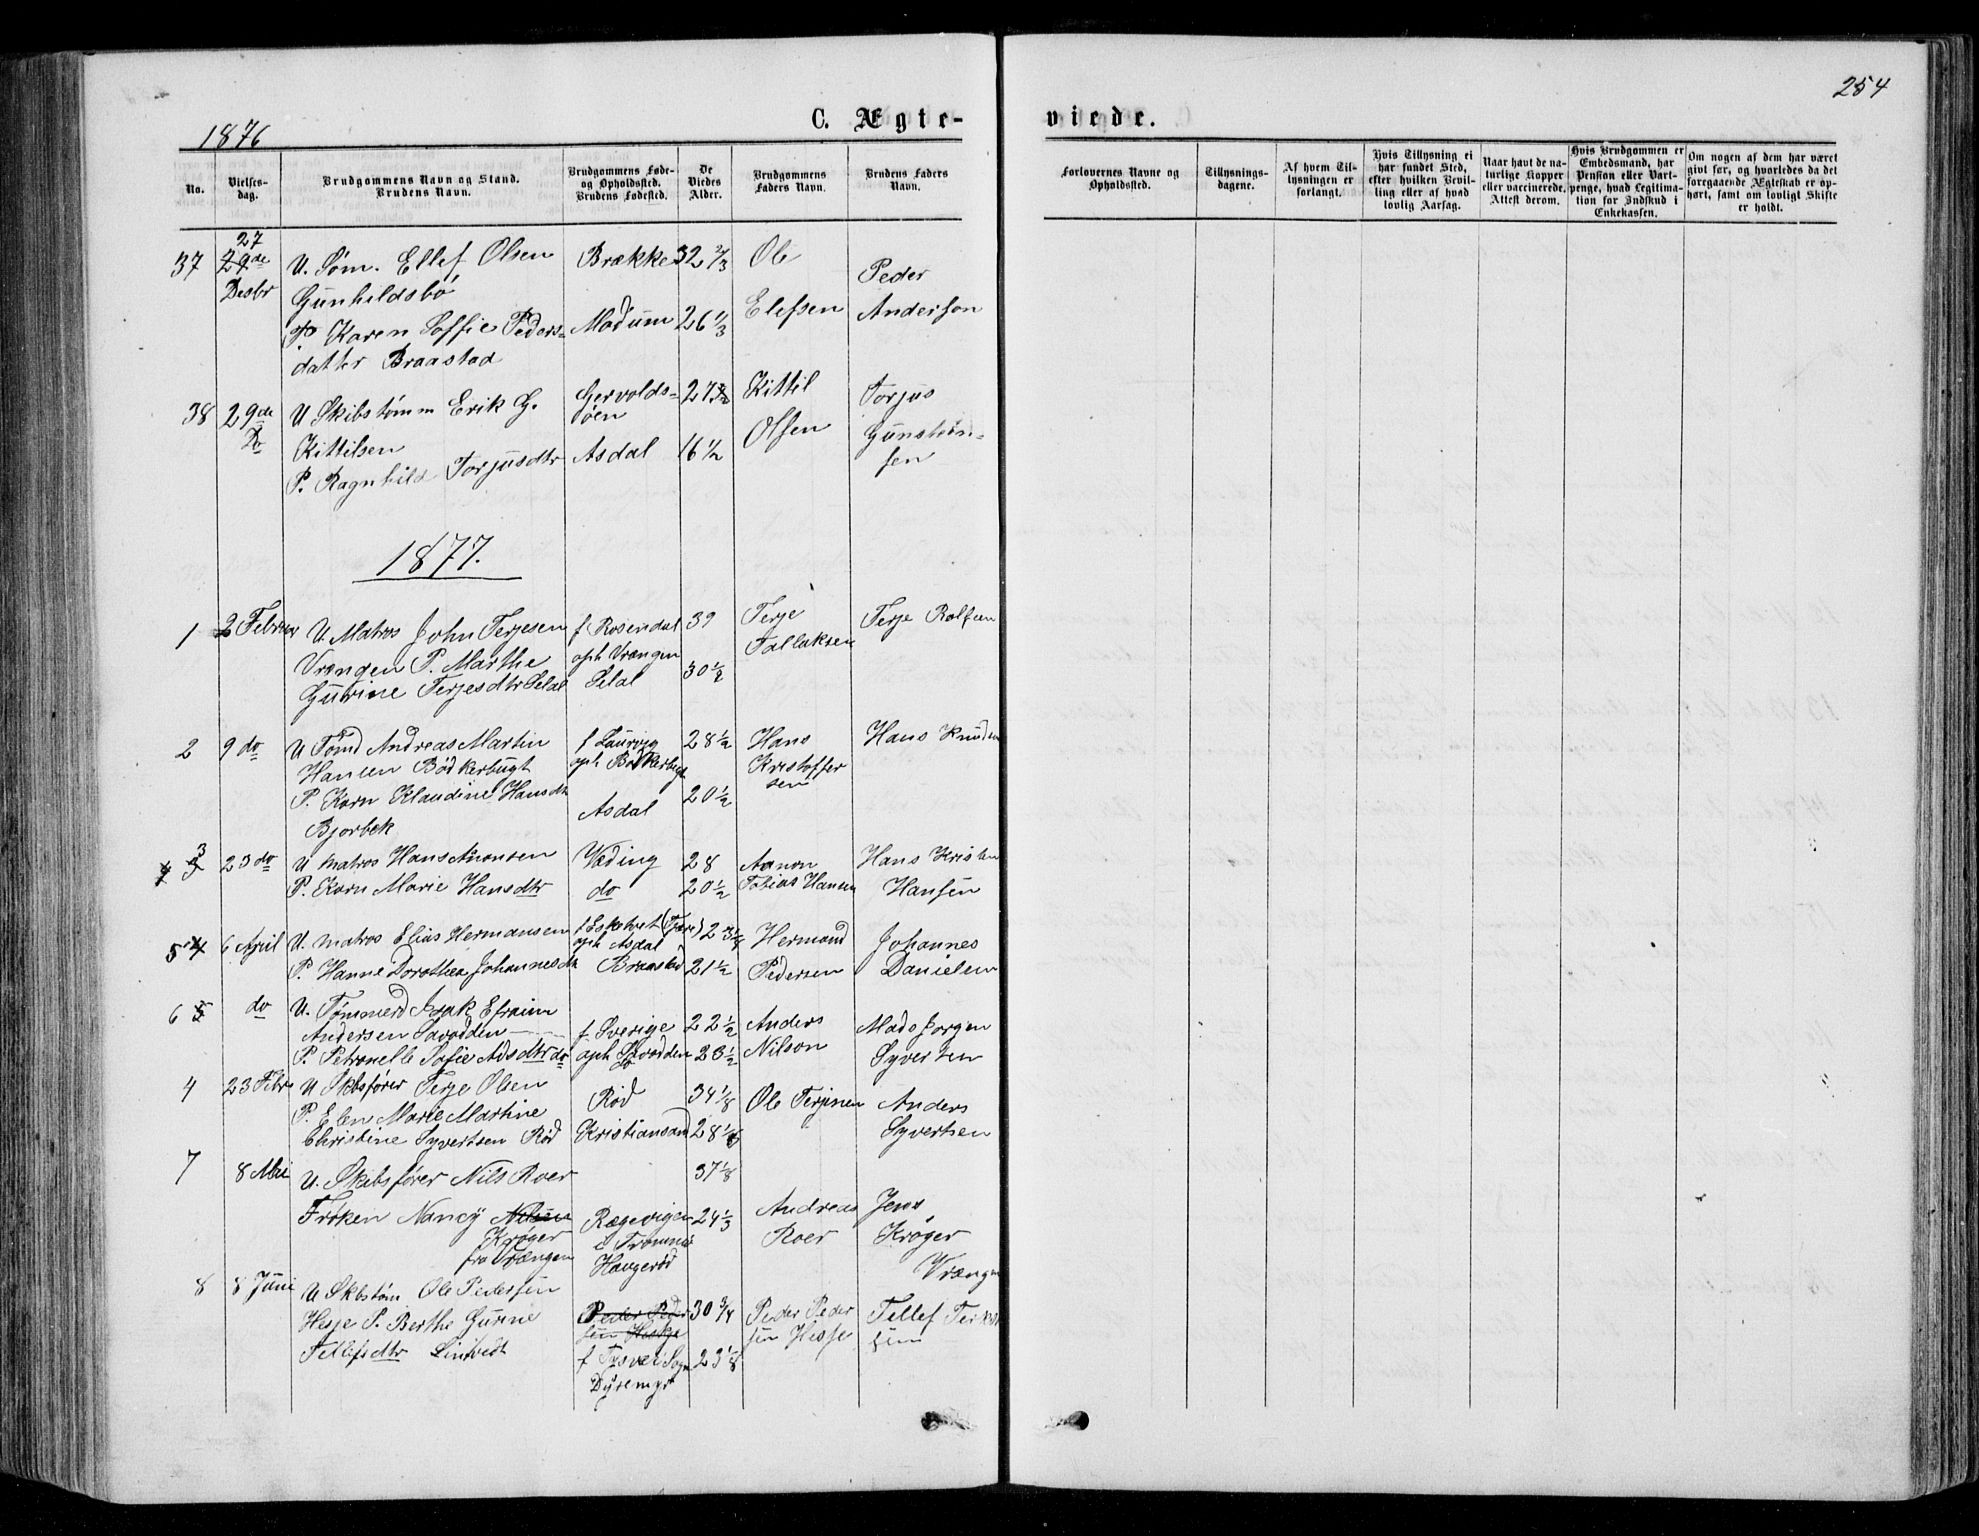 254
1876
C. Ægte-
viede.
No.
Vielses-
dag.
Brudgommens Navn og Stand.
Brudens Navn.
Brudgommens Føde-
og Opholdssted.
Brudens Fødested.
De
Viedes
Alder.
Brudgommens
Faders Navn.
Brudens Faders
Navn.
Forlovernes Navne og
Opholdssted.
Tillysnings-
dagene.
Af hvem Til-
lysningen er
forlangt.
Hvis Tillysning ei
har fundet Sted,
efter hvilken Bevil-
ling eller af hvad
lovlig Aarsag.
Naar havt de na-
turlige Kopper
eller vaccinerede.
Attest derom.
Hvis Brudgommen er
Embedsmand, har
Pension eller Vart-
penge, hvad Legitima-
tion for Indskud i
Enkekassen.
Om nogen af dem har været
givt før, og hvorledes da det
foregaaende Ægteskab er op-
hørt, samt om lovligt Skifte
er holdt.
37 27 29de Desbr
U. Søm. Ellef Olsen
Gunhildsbö
P Karen Soffie Peders-
datter Braastad
Brække
Modum
32 2/3
26 1/3
Ole
Elefsen
Peder
Anderson
38 29de Do
U Skibstømm Erik G.
Kittilsen
P. Ragnhild Torjusdtr
Gervolds-
øen
Asdal
27
16 1/2
Kittil
Olsen
Torjus
Gunstein-
sen
1877.
1 2 Februar
U. Matros John Terjesen
Vrængen P. Marthe
Gurine Terjesdtr Selal
f Rosendal
oph Vrængen
Selal
39
30 1/2
Terje
Tallaksen
Terje Rolfsen
2 9 do
U Tömd Andreas Martin
Hansen Bödkerbugt
P. Karn Klaudine Hansdt
Bjorbek
f Laurvig
oph Bödkerbugt
Asdal
28 1/2
20 1/2
Hans
Kristoffer
sen
Hans Knudsen
3 23 do
U matros Hans Anonsen
P. Karn Marie Hansdtr
Væding
do
28
20 1/2
Aanon
Tobias Hansen
Hans Kristen
Hansen
5 4 6 April
U. matros Elias Hermansen
P. Hanne Dorothea Johannesdt
oph Asdal
Braastad
23
21 1/2
Hermand
Pedersen
Johannes
Danielsen
6 5 do
U. Tømmerd Isak Efraim
Andersen Savodden
P. Petronelle Sofie Adsdtr do
f. Sverige
oph Savodden
22 1/2
23 1/2
Anders
Nilson
Mads Jorgen
Syvertsen
4 23 Febr
U Skbsfører Terje Olsen
P. Elen Marie Martine
Christine Syvertsen Rød
Rød
Kristiansand
34 1/8
28
Ole Terjesen
Anders
Syvertsen
7 8 Mai
U. Skibsfører Nils Roer
Frøken Nancy Nilsen
Krøger
fra Vrængen
Rægevigen
Tromø
Havgerød
37 1/8
24 1/3
Andreas
Roer
Jens
Krøger
Vrængen
8 8 Juni
U Skbstøm Ole Pedersen
Hisje P. Berthe Gurine
Tellefsdtr Linvedt
Peder Peder
sen Hisje
f Tysvær Sogn
Dyremyr
30 3/4
23 1/8
Peder Peder
sen Hisje
Tellef Terkel
sen